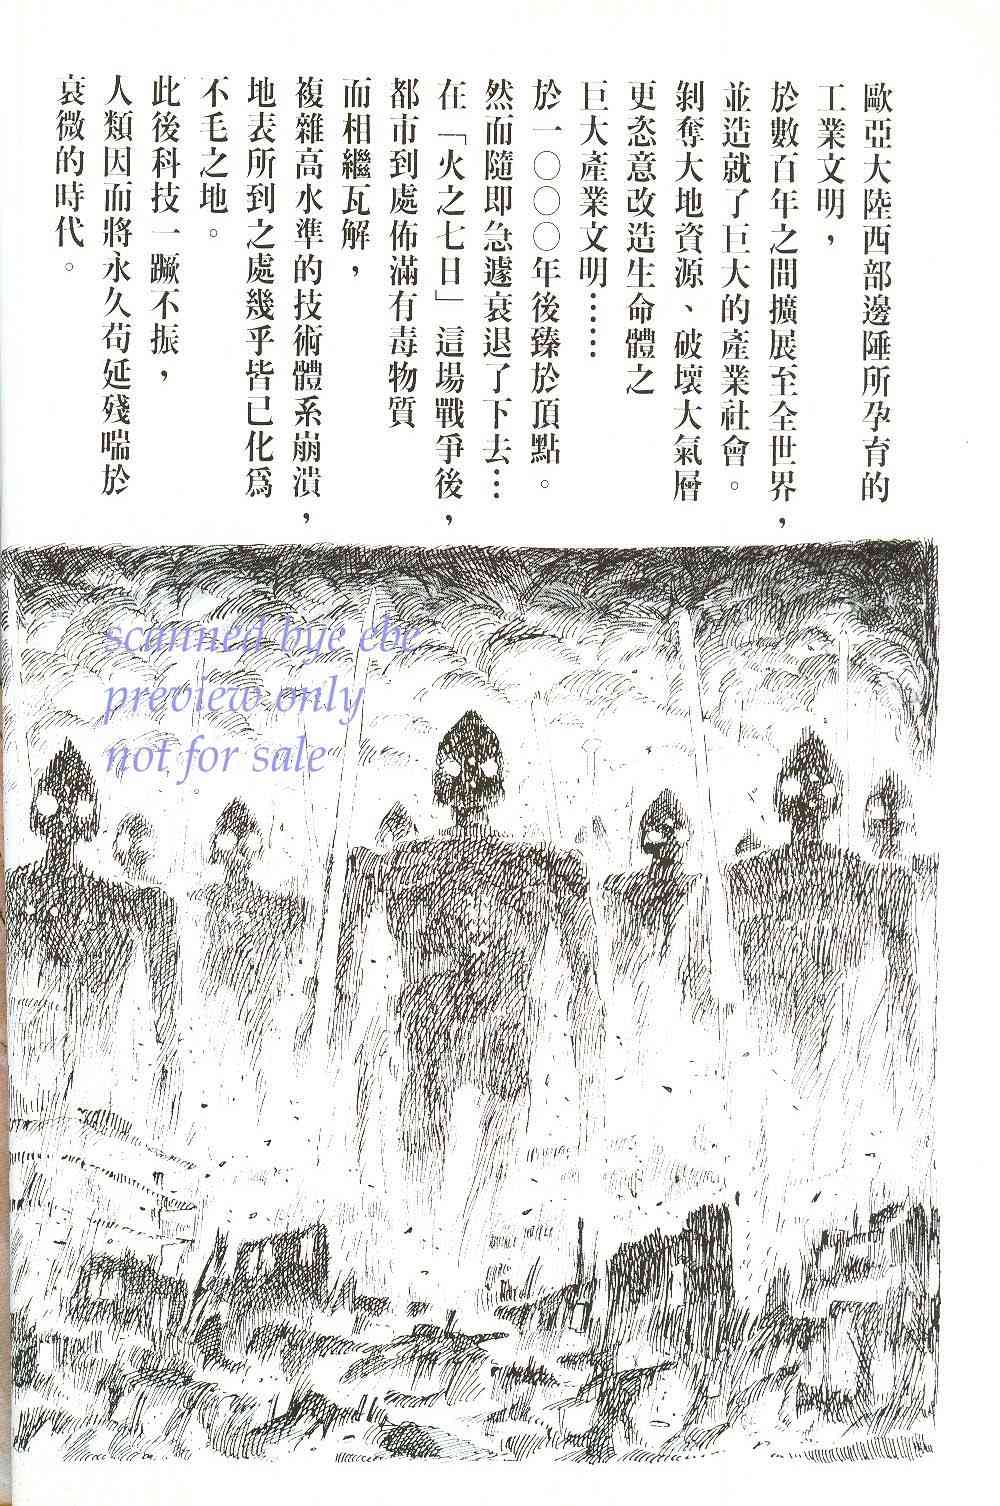 歐亞大陸西部邊陲所孕育的
工業文明，
於數百年之間擴展至全世界，
並造就了巨大的產業社會。
剝奪大地資源、破壞大氣層
更恣意改造生命體之
巨大產業文明……
於一〇〇〇年後臻於頂點。
然而隨即急遽衰退了下去…
在「火之七日」這場戰爭後，
都市到處佈滿有毒物質
而相繼瓦解，
複雜高水準的技術體系崩潰，
地表所到之處幾乎皆已化為
不毛之地。
此後科技一蹶不振，
人類因而將永久苟延殘喘於
衰微的時代。
scanned bye ebe
preview only
not for sale